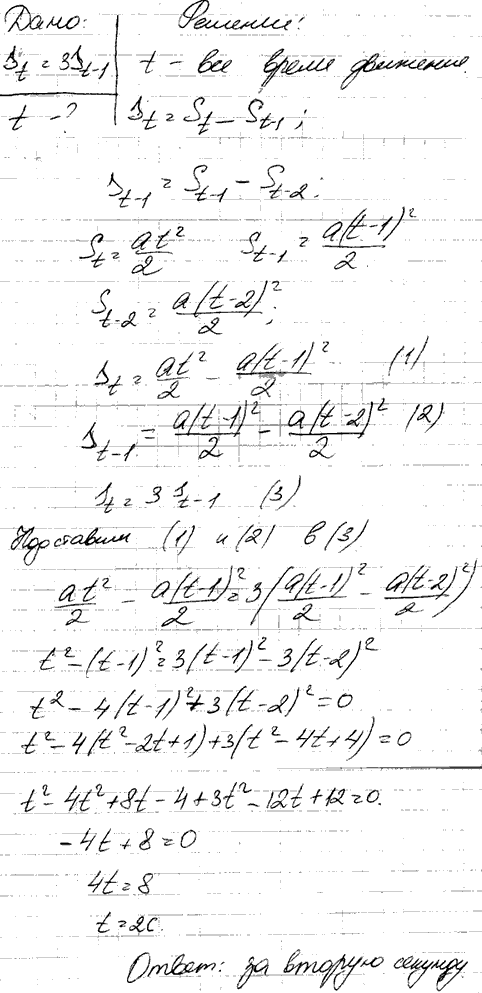 Дано: Решение:
s_t = 3s_{t-1} t – все время движения.
t – ? s_t = S_t – S_{t-1};
s_{t-1} = S_{t-1} – S_{t-2};
S_t = at²/2 S_{t-1} = a(t-1)²/2
S_{t-2} = a(t-2)²/2;
s_t = at²/2 – a(t-1)²/2 (1)
s_{t-1} = a(t-1)²/2 – a(t-2)²/2 (2)
s_t = 3s_{t-1} (3)
Подставим (1) и (2) в (3)
at²/2 – a(t-1)²/2 = 3(a(t-1)²/2 – a(t-2)²/2)
t² – (t-1)² = 3(t-1)² – 3(t-2)²
t² – 4(t-1)² + 3(t-2)² = 0
t² – 4(t² – 2t + 1) + 3(t² – 4t + 4) = 0
t² – 4t² + 8t – 4 + 3t² – 12t + 12 = 0.
-4t + 8 = 0
4t = 8
t = 2с.
Ответ: за вторую секунду.